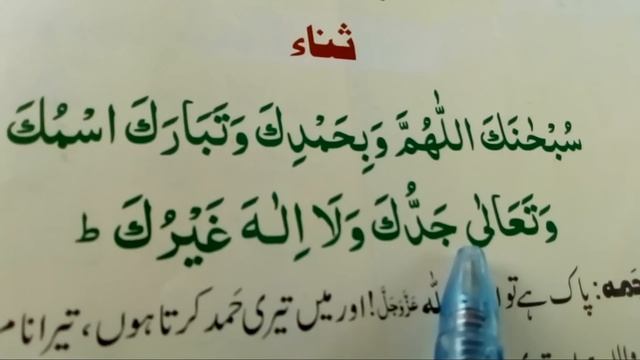 ثناء
سُبْحٰنَكَ اللّٰهُمَّ وَبِحَمْدِكَ وَتَبَارَكَ اسْمُكَ
وَتَعَالٰی جَدُّكَ وَلَا اِلٰهَ غَيْرُكَ ط
پاک ہے تو عَزَّوَجَلَّ! اور میں تیری حَمد کرتا ہوں، تیرا نام